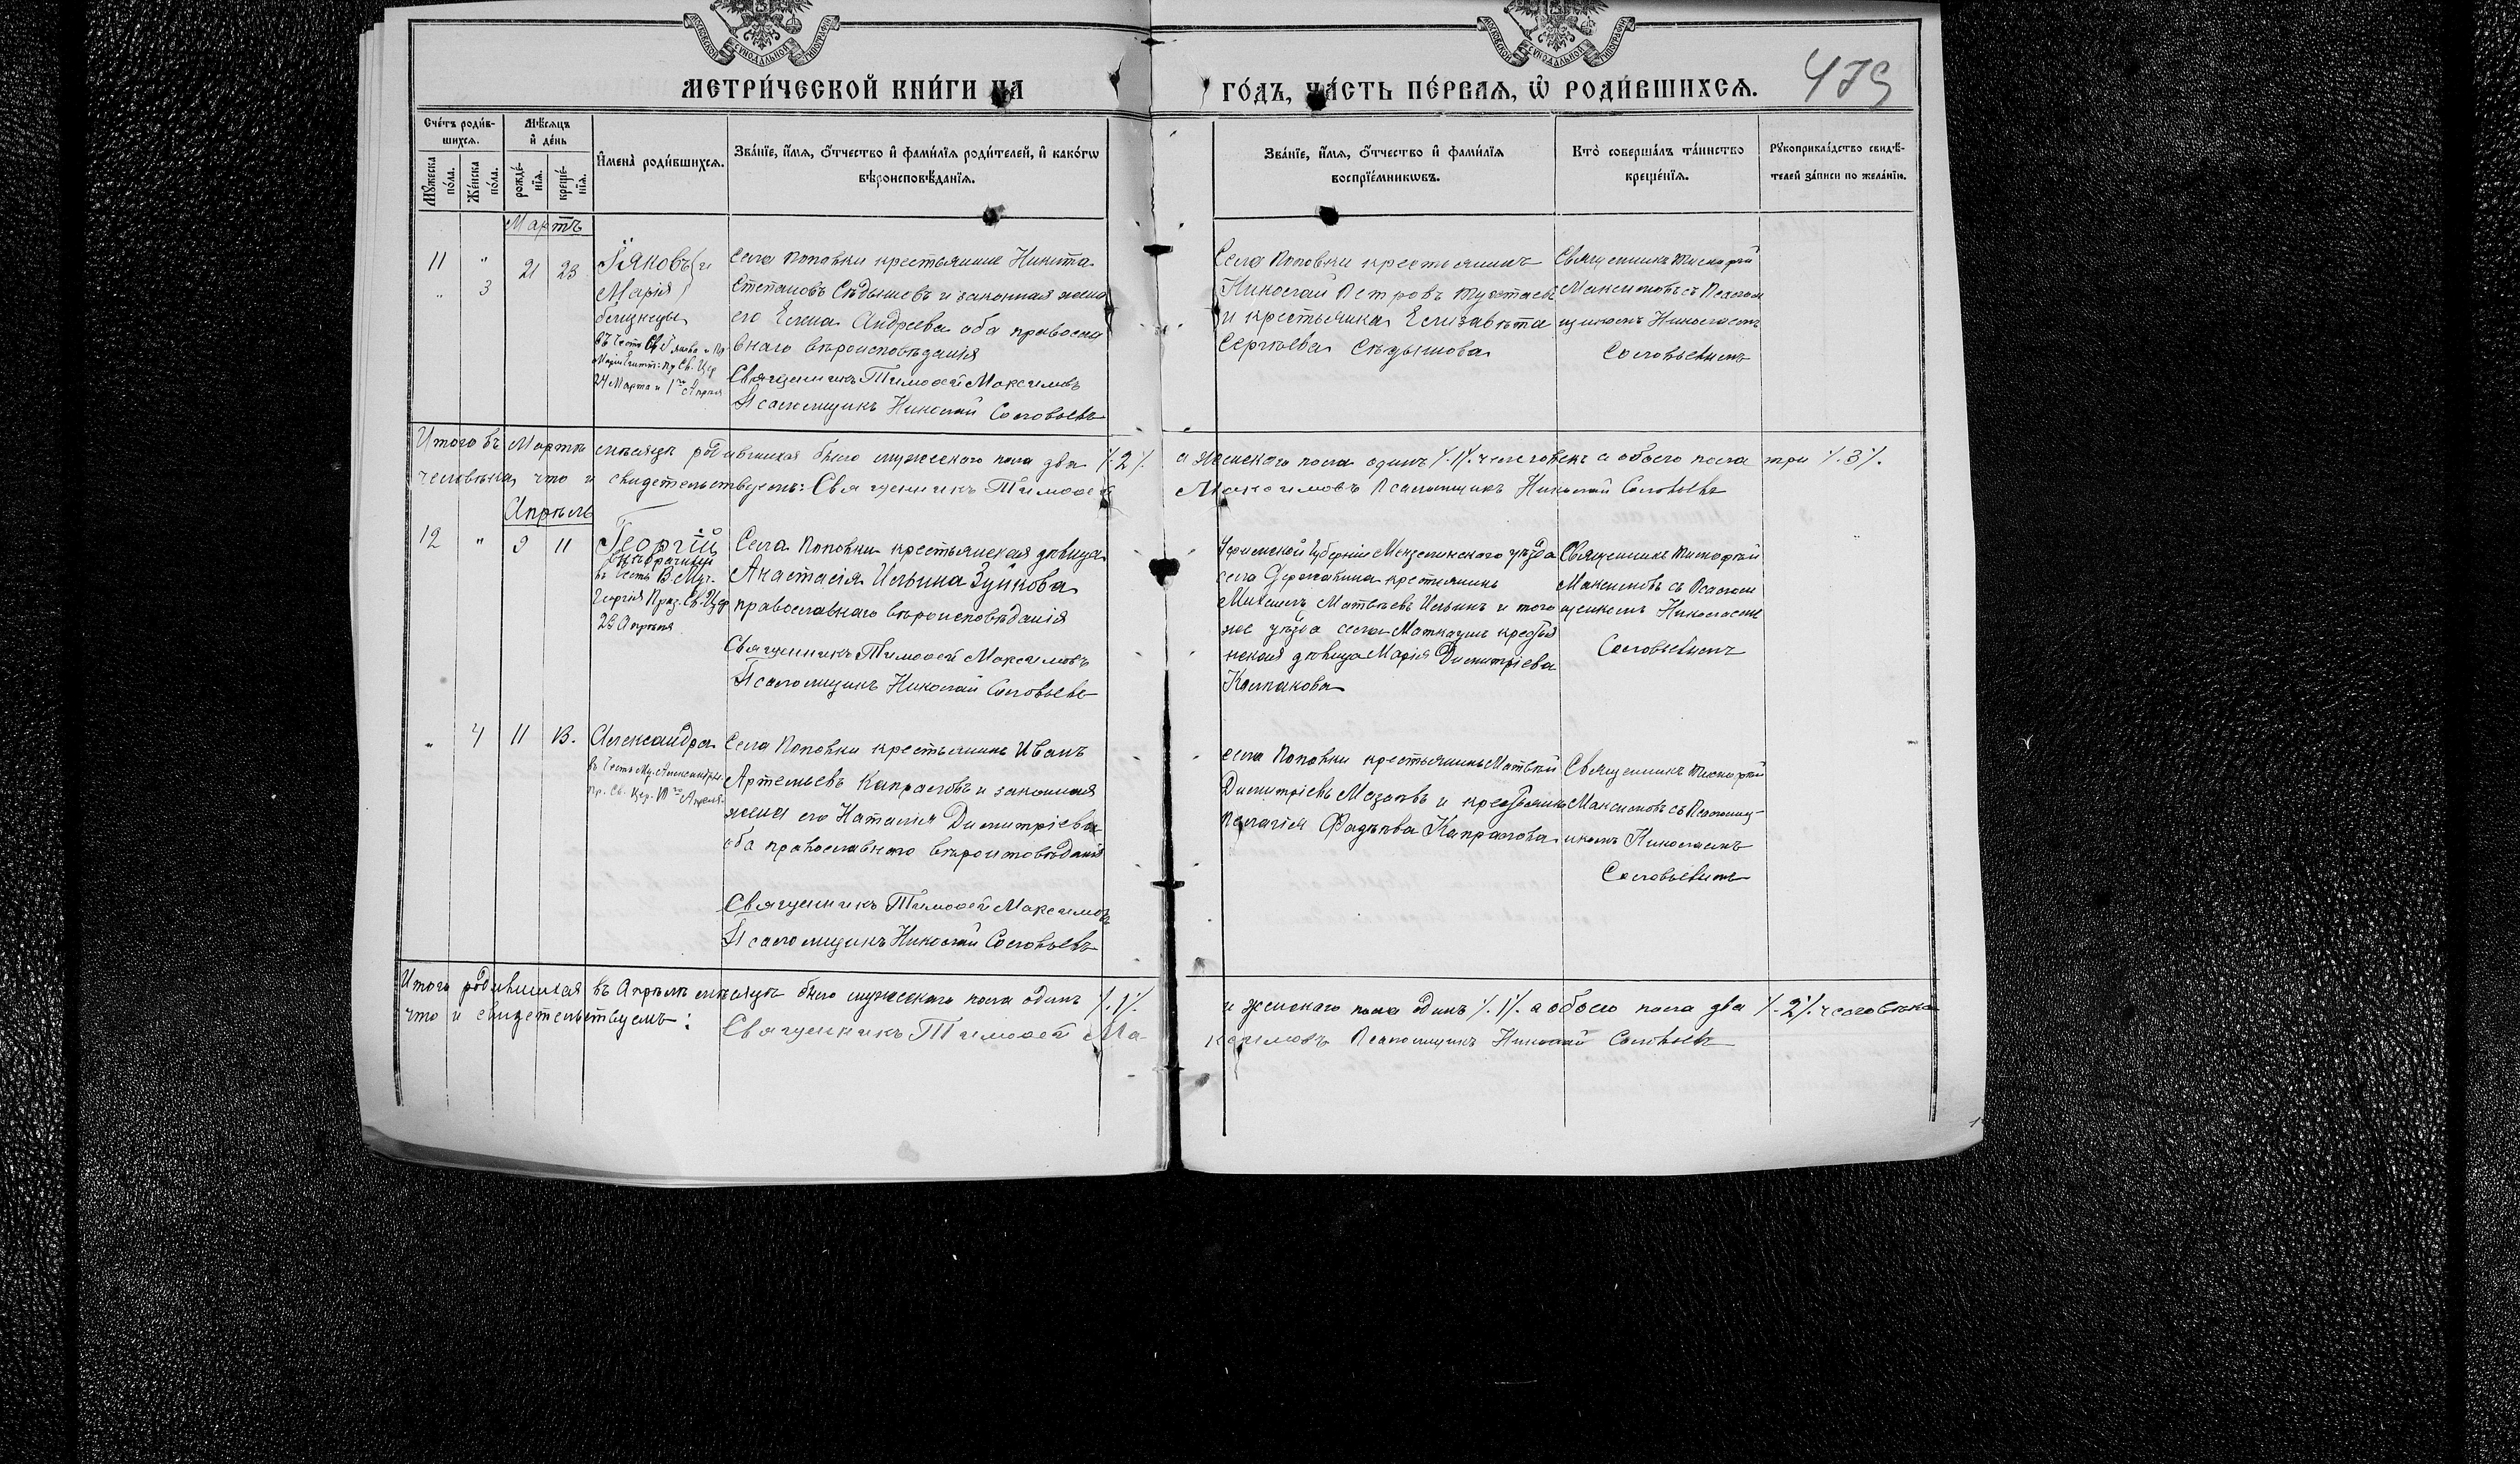 МЕТРИ́ЧЕСКОЙ КНИ́ГИ НА
ГО́ДЪ, ЧА́СТЬ ПЕ́РВАЯ, Ѡ҆ РОДИ́ВШИХСЯ.
479
Сче́тъ роди́в-
шихся.
Мѣ́сяцъ
и҆ де́нь
Му́жеска
по́ла.
Же́нска
по́ла.
рожде́-
нїѧ.
креще́-
нїѧ.
И҆мена̀ роди́вшихся.
Зва́нїе, и҆́мя, ѻ҆́тчество и҆ фами́лїя роди́телей, и҆ како́гѡ
вѣроисповѣ́данїя.
Зва́нїе, и҆́мя, ѻ҆́тчество и҆ фами́лїя
воспрїе́мникѡвъ.
Кто̀ соверша́лъ та́инство
креще́нїя.
Рꙋкоприкла́дство свидѣ́-
телей за́писи по жела́нїю.
Мартъ
11 " 21 23
" 3
Іяковъ и
Марія
близнецы
24 Марта и 1го Апрѣля
Села Поповки крестьянинъ Никита
Степановъ Сѣдышевъ и законная жена
его Елена Андреева оба правосла
внаго вѣроисповѣданія
Священникъ Тимоѳей Максимовъ
Псаломщикъ Николай Соловьевъ
Села Поповки крестьянинъ
Николай Петровъ
и крестьянка Елизавѣта
Сергѣева Сѣдышова
Священникъ Тимофей
Максимовъ съ Псалом
щикомъ Николаемъ
Соловьевымъ
Итого въ Мартѣ мѣсяцѣ родившихся было мужескаго пола два /.2/. а женскаго пола одинъ /.1/. человекъ а обоего пола три /.3/.
человѣка, что и свидетельствуемъ: Священникъ Тимоѳей Максимовъ Псаломщикъ Николай Соловьевъ
Апрѣль
12 " 9 11
Георгій
внѣбрачный
въ честь В.Муч.
Георгія Праз. Св. Цер
23 Апрѣля
Села Поповки крестьянская дѣвица
Анастасія Ильина Зуйкова
православнаго вѣроисповѣданія
Священникъ Тимоѳей Максимовъ
Псаломщикъ Николай Соловьевъ
Уфимской Губерніи Мензелинскаго уѣзда
села Державина крестьянинъ
Михаилъ Матвѣевъ Ильинъ и того
же уѣзда села Маткаушъ крестья
нская дѣвица Марія Димитріева
Колпакова
Священникъ Тимофей
Максимовъ съ Псалом
щикомъ Николаемъ
Соловьевымъ
" 4 11 13.
Александра
въ Честь Му. Александры.
Села Поповки крестьянинъ Иванъ
Артемьевъ Капраловъ и законная
жена его Наталія Димитріева
оба православнаго вѣроисповѣданія
Священникъ Тимоѳей Максимовъ
Псаломщикъ Николай Соловьевъ
Села Поповки крестьянинъ Матвѣй
Димитріевъ Мазовъ и крестьянка
Пелагія Фадѣева Капралова
Священникъ Тимофей
Максимовъ съ Псаломщ-
икомъ Николаемъ
Соловьевымъ
Итого родившихся въ Апрѣлѣ мѣсяцѣ было мужескаго пола одинъ /.1/. и женскаго пола одинъ /.1/. а обоего пола два /.2/. человѣка
что и свидетельствуемъ: Священникъ Тимоѳей Максимовъ Псаломщикъ Николай Соловьевъ